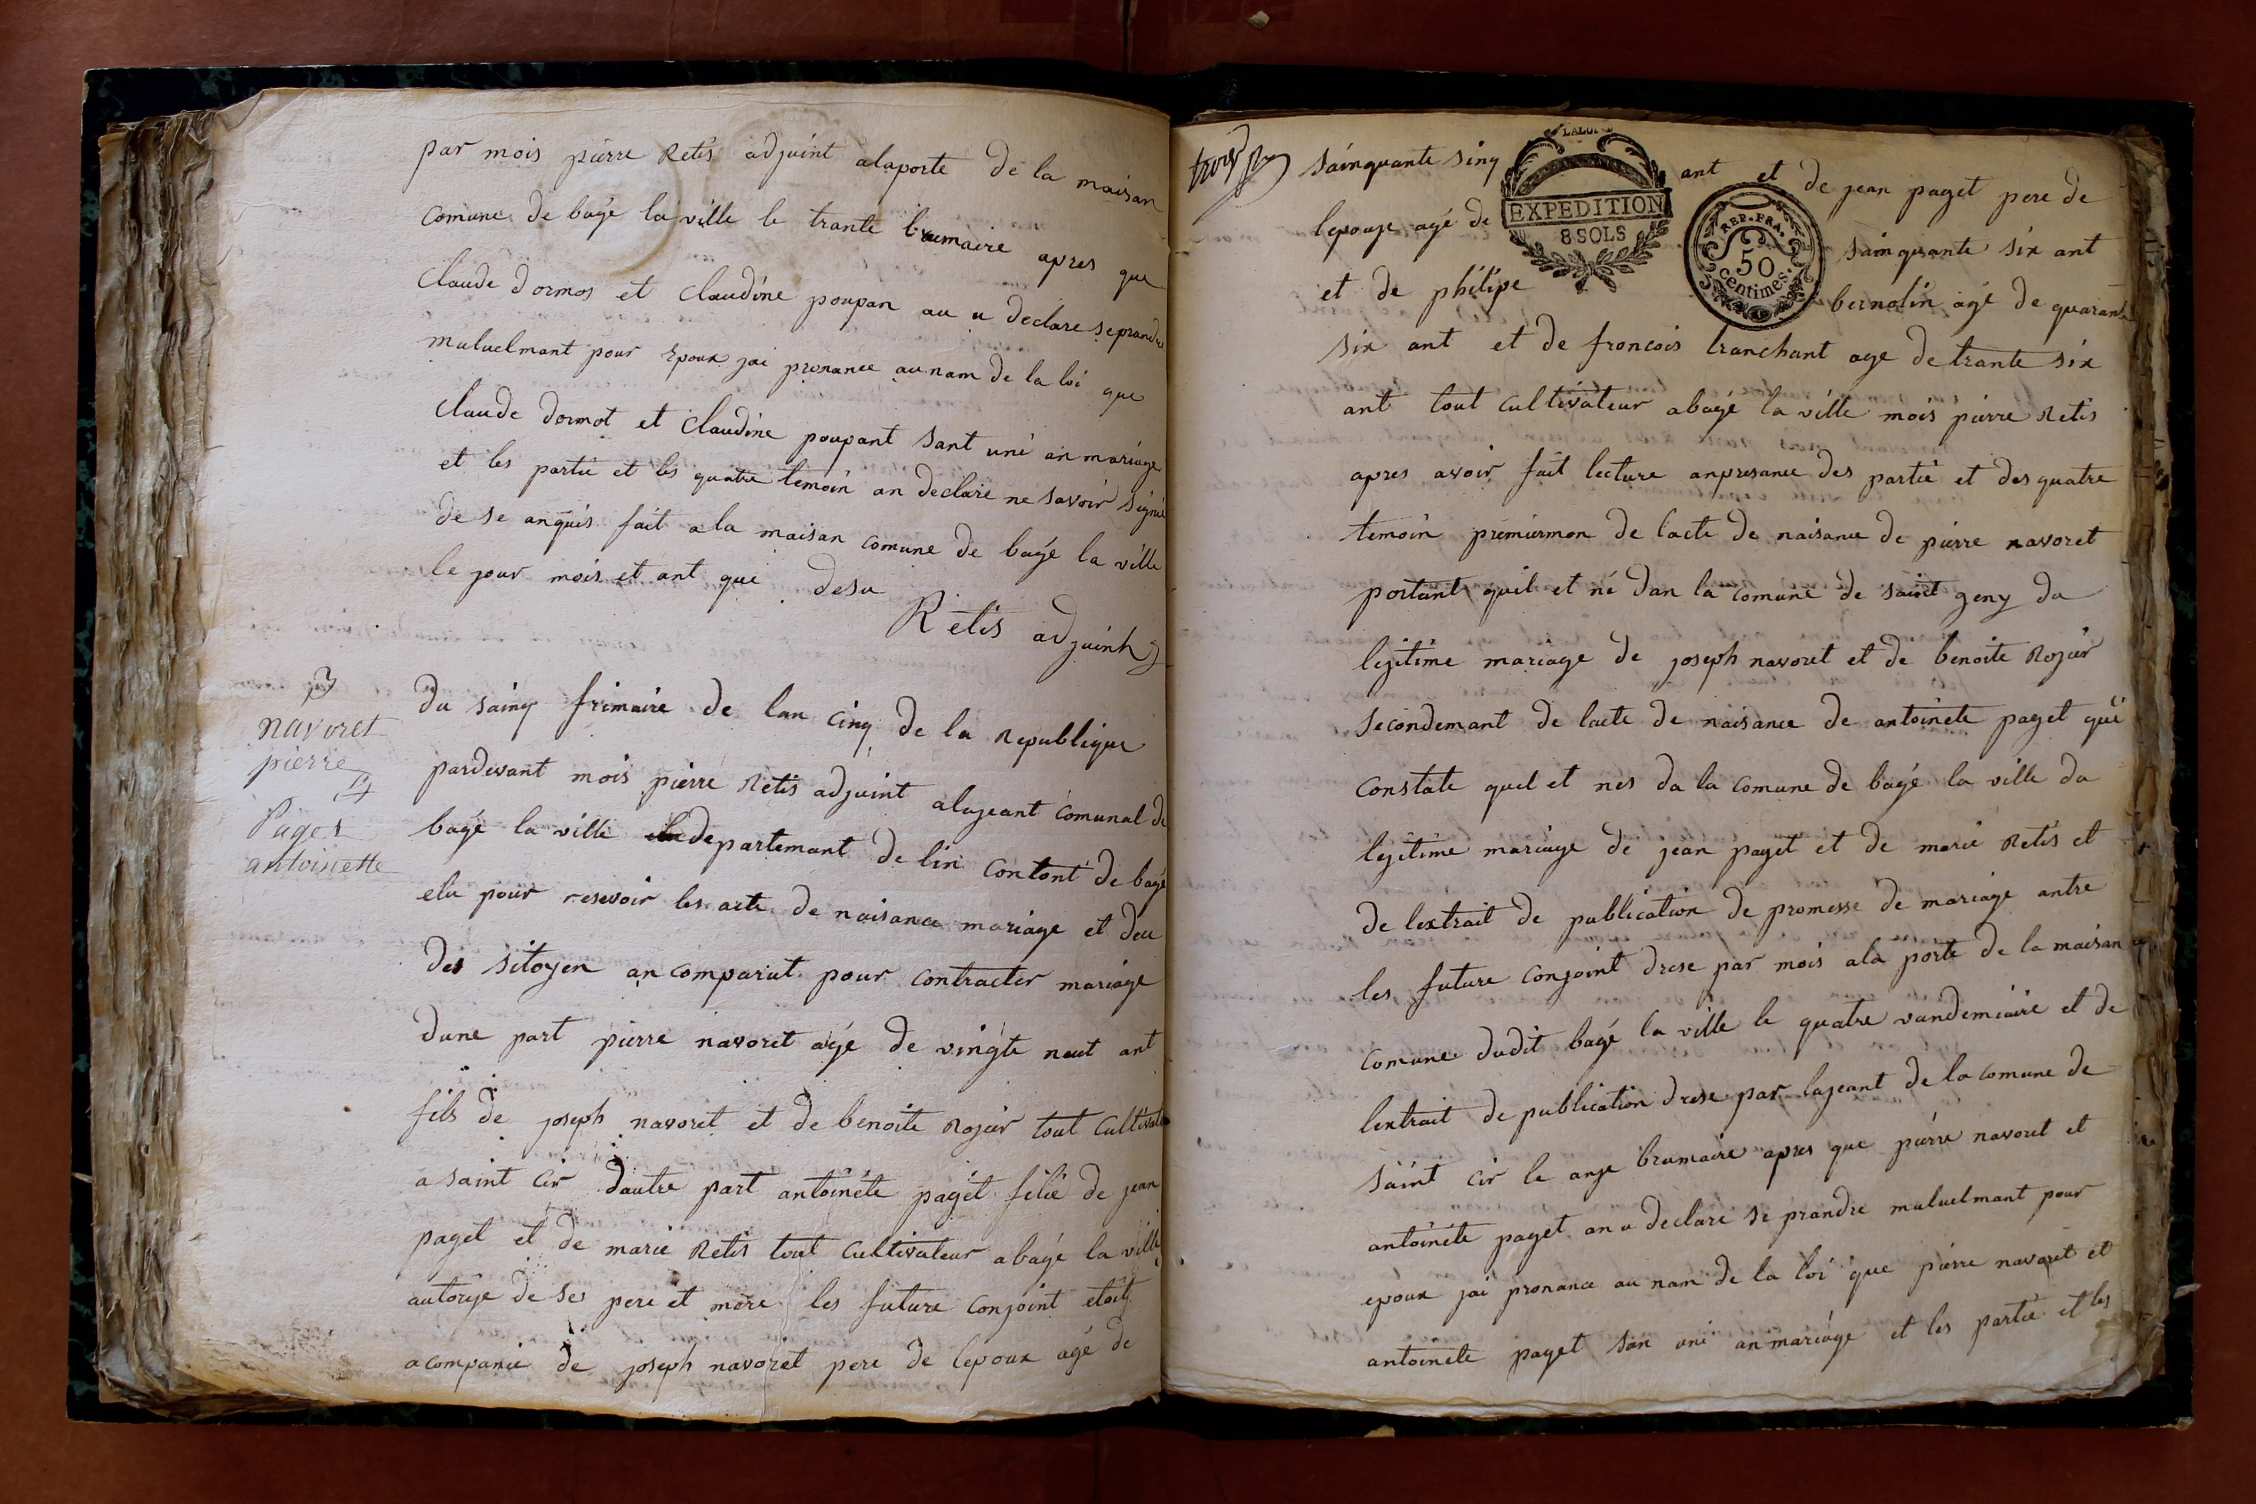 par mois pierre Retis adjoint alaporte de la maison
comune de bagé la ville le trante brumaire apres que
Claude dormos et Claudine poupan an a declare seprandre
mutuelmant pour Epoux jai pronance au nam de la loi que
Claude dormot et Claudine poupant sant uni an mariage
et les partie et les quatre temoin an declaré ne savoir signié
de se anquis fait a la maisan comune de bagé la ville
le jour mois et ant que desu
Retis adjoint
3
navoret
pierre
&
Paget
antoinette
du sainq frimaire de lan cinq de la Republique
pardevant mois pierre Retis adjoint alageant comunal de
bagé la ville departemant de lin contont de bagé
elu pour resevoir les acte de naisance mariage et deu
des sitoyen an comparut pour contracter mariage
dune part pierre navoret agé de vingte neut ant
fils de joseph navoret et de benoite Rojeir tout cultivate
a saint Cir dautre part antoinete paget filie de jean
paget et de marie Retis tout cultivateur abagé la ville
autorije de ses pere et mere les future conjoint etoit
acompanié de joseph navoret pere de lepoux agé de
trois
sainquante sinq ant et de jean paget pere de
LALOI
EXPEDITION
8 SOLS
REP. FRA.
50
centimes.
lepouse agé de sainquante six ant
et de philipe bernolin agé de quarante
six ant et de francois tranchant age de trante six
ant tout cultivateur abagé la ville mois pierre Retis
apres avoir fait lecture anpresance des partie et des quatre
temoin premiermon de lacte de naisance de pierre navoret
portant quil et né dan la comune de saint geny du
legitime mariage de joseph navoret et de benoite Rojeir
secondemant de lacte de naisance de antoinete paget qui
constate quel et nes da la comune de bagé la ville du
legitime mariage de jean paget et de marie Retis et
de lextrait de publication de promesse de mariage antre
les future conjoint drese par mois ala porte de la maisan
comune dudit bagé la ville le quatre vandemiaire et de
lextrait de publication drese par lageant de la comune de
saint cir le onze brumaire apres que pierre navoret et
antoinete paget an a declare se prandre mutuelmant pour
epoux jai pronance au nam de la loi que pierre navoret et
antoinete paget san uni an mariage et les partie et les